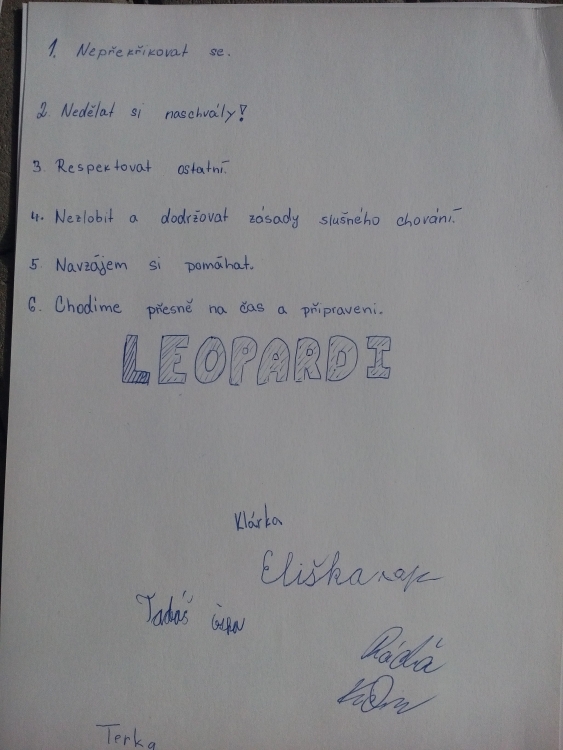 1. Nepřekřikovat se.
2. Nedělat si naschvály!
3. Respektovat ostatní.
4. Nezlobit a dodržovat zásady slušného chování.
5. Navzájem si pomáhat.
6. Chodíme přesně na čas a připraveni.
LEOPARDI
Klárka
Eliška
Tadáš
Rádá
Terka